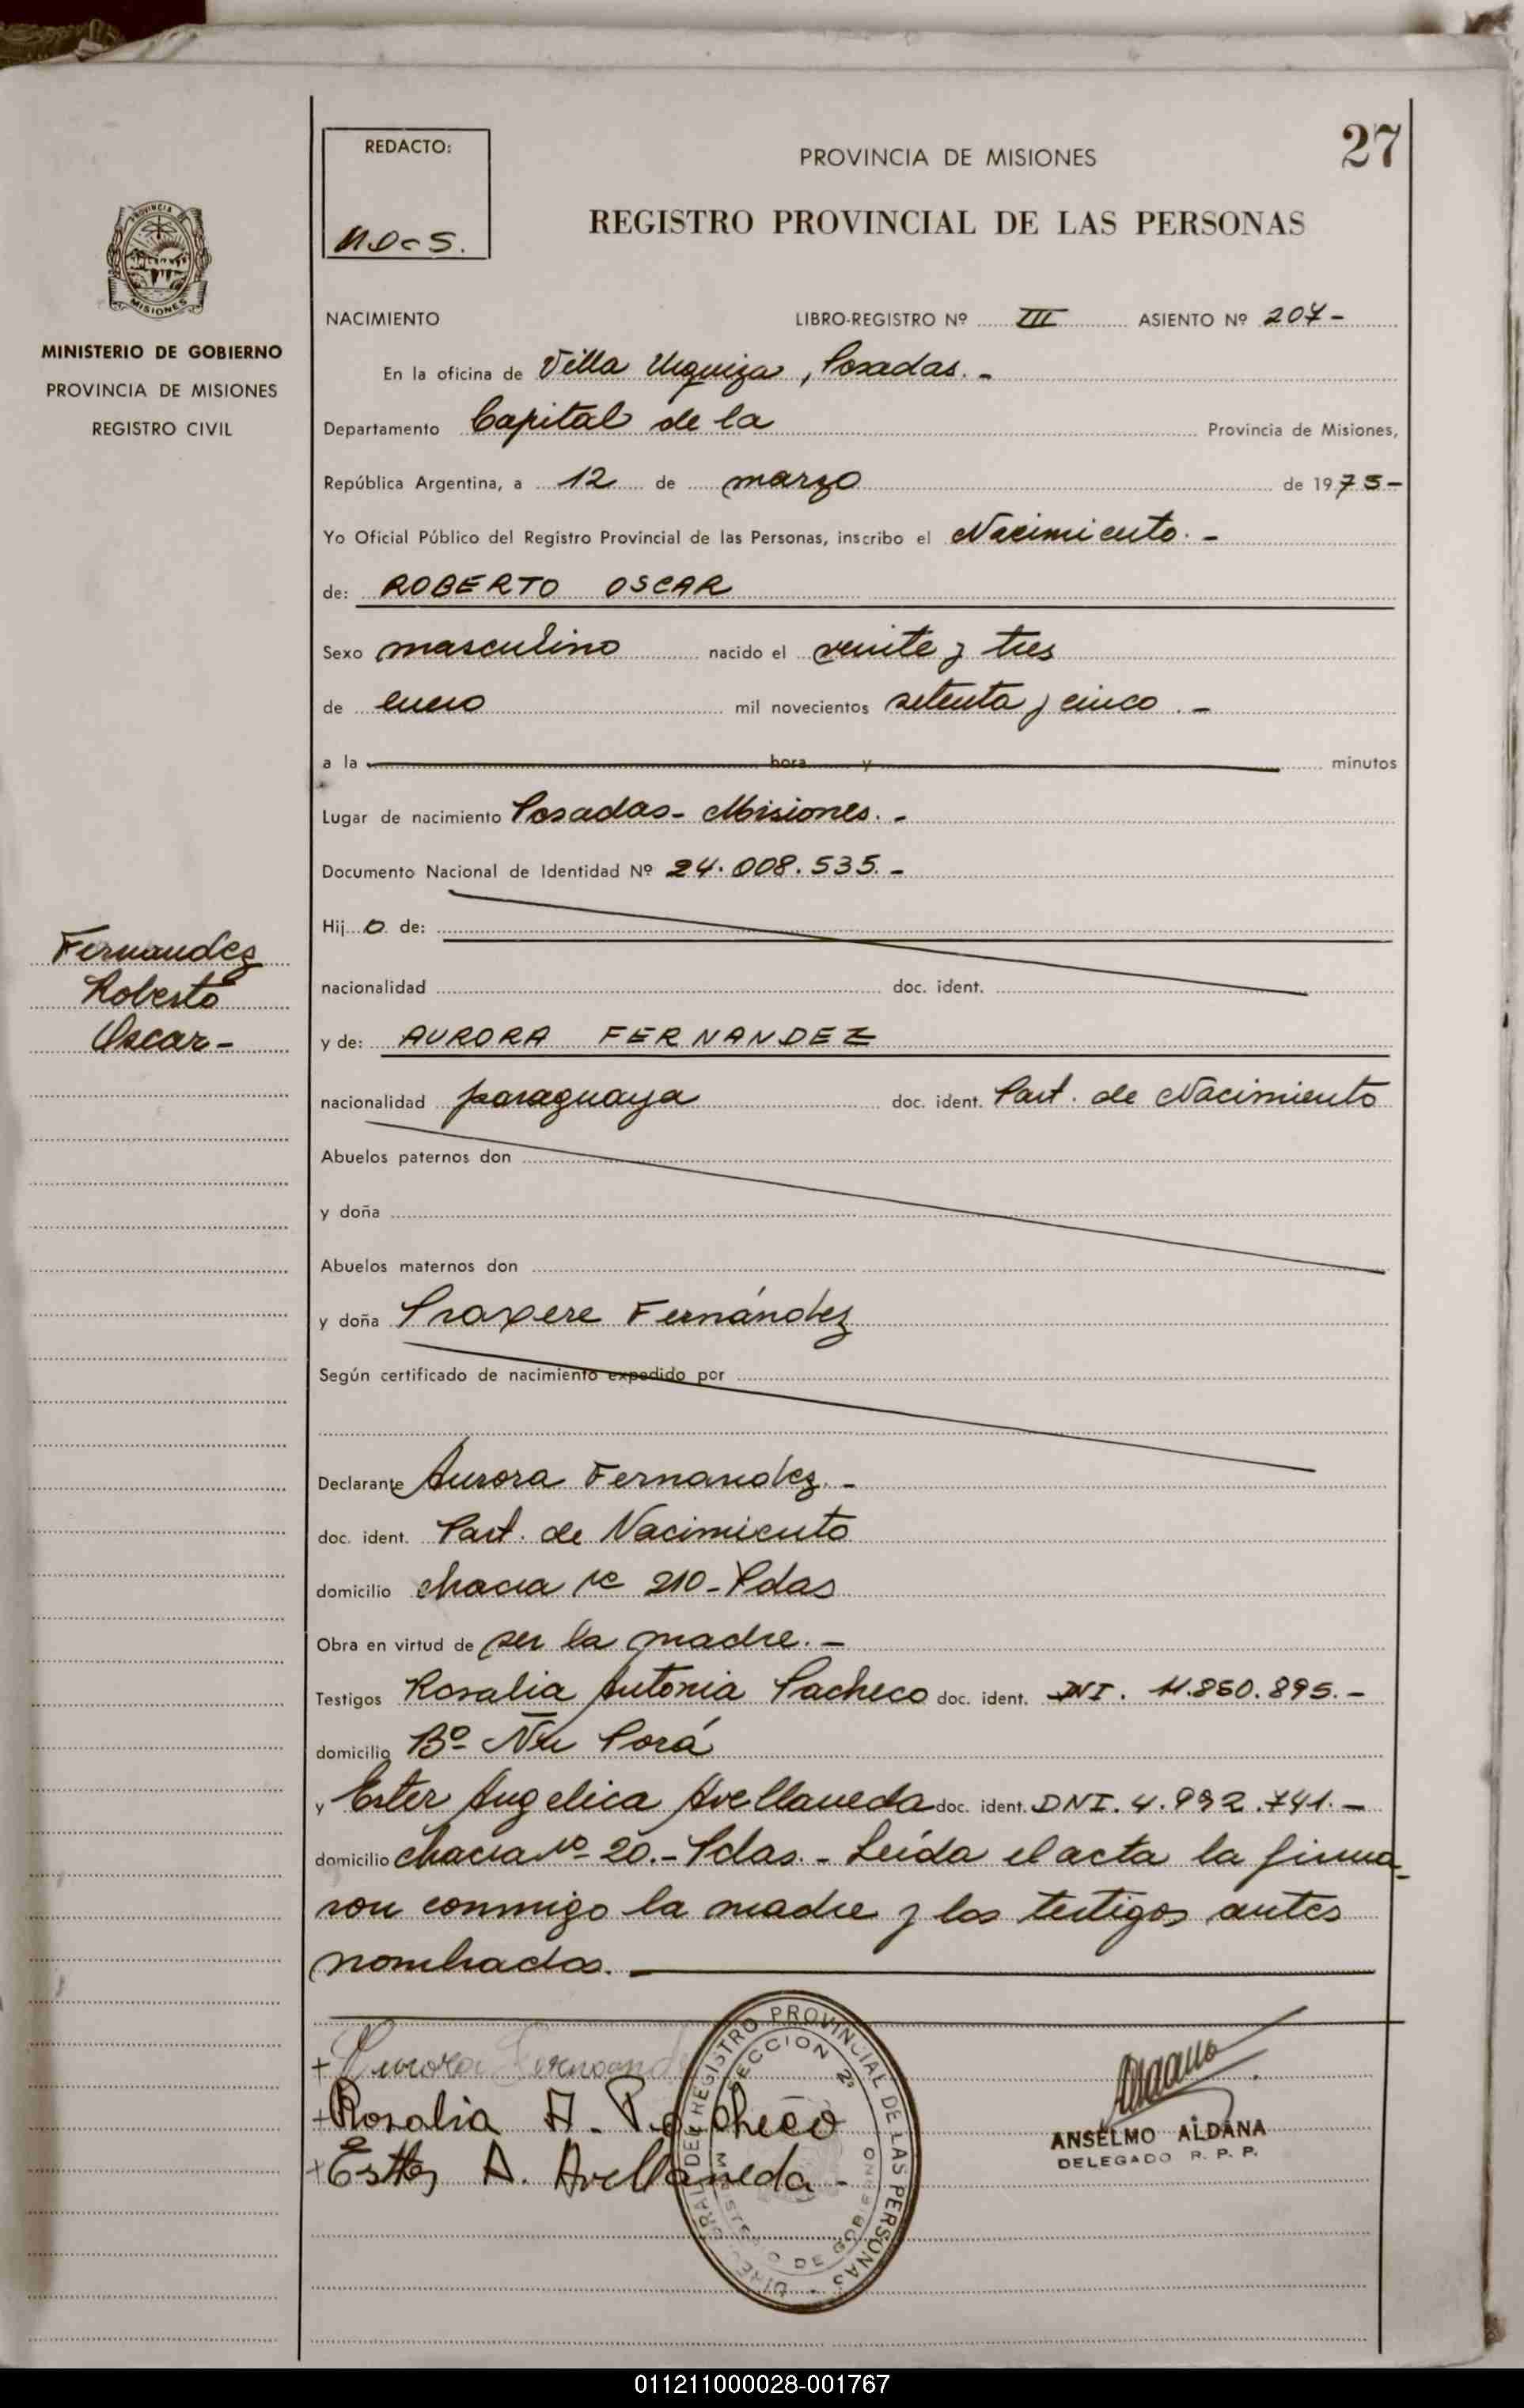 27
REDACTO:
PROVINCIA DE MISIONES
REGISTRO PROVINCIAL DE LAS PERSONAS
PROVINCIA DE
MISIONES
MINISTERIO DE GOBIERNO
PROVINCIA DE MISIONES
REGISTRO CIVIL
NACIMIENTO LIBRO-REGISTRO Nº III ASIENTO Nº 207-
En la oficina de Villa Urquiza, Posadas.-
Departamento Capital de la Provincia de Misiones,
República Argentina, a 12 de marzo de 1975-
Yo Oficial Público del Registro Provincial de las Personas, inscribo el Nacimiento.-
de: ROBERTO OSCAR
Sexo masculino nacido el veinte y tres
de enero mil novecientos setenta y cinco.-
a la hora y minutos
Lugar de nacimiento Posadas- Misiones.-
Documento Nacional de Identidad Nº 24.008.535.-
Hijo de:
Fernandez
Roberto
Oscar-
nacionalidad doc. ident.
y de: AURORA FERNANDEZ
nacionalidad paraguaya doc. ident. Part. de Nacimiento
Abuelos paternos don
y doña
Abuelos maternos don
y doña Fernández
Según certificado de nacimiento expedido por
Declarante Aurora Fernandez.-
doc. ident. Part. de Nacimiento
domicilio chacra Nº 210-Pdas
Obra en virtud de ser la madre.-
Testigos Rosalia Antonia Pacheco doc. ident. DNI. 11.860.895.-
domicilio Bº Ñu Porá
y Ester Angelica Avellaneda doc. ident. DNI. 4.992.741.-
domicilio chacra Nº 20.-Pdas.- Leída el acta la firma-
ron conmigo la madre y los testigos antes
nombrados.
+ Aurora Fernand
+ Rosalia A. Pacheco
+ Esther A. Avellaneda-
DIRECC GRAL DEL REGISTRO PROVINCIAL DE LAS PERSONAS
SECCION 2ª
MINISTERIO DE GOBIERNO
ANSELMO ALDANA
DELEGADO R. P. P.
011211000028-001767